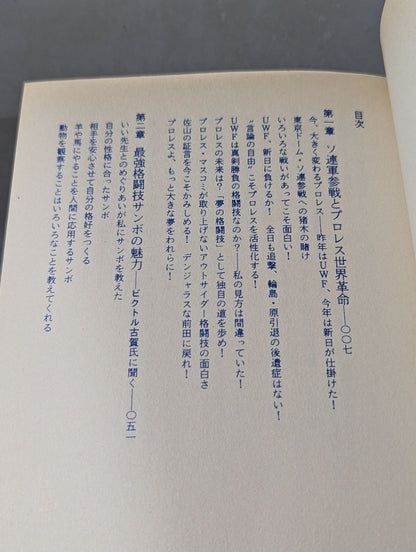 目次
第一章 ソ連軍参戦とプロレス世界革命——〇〇七
今、大きく変わるプロレス——昨年はUWF、今年は新日が仕掛けた！
東京ドーム・ソ連参戦への猪木の賭け
いろいろな戦いがあってこそ面白い！
UWF、新日に負けるか！ 全日も追撃、輪島・原引退の後遺症はない！
“言論の自由”こそプロレスを活性化する！
UWFは真剣勝負の格闘技なのか？——私の見方は間違っていた！
プロレスの未来は？「夢の格闘技」として独自の道を歩め！
プロレス・マスコミが取り上げないアウトサイダー格闘技の面白さ
佐山の証言を今こそかみしめる！ デンジャラスな前田に戻れ！
プロレスよ、もっと大きな夢をわれらに！
第二章 最強格闘技サンボの魅力——ビクトル古賀氏に聞く——〇五一
いい先生とのめぐりあいが私にサンボを教えた
自分の性格に合ったサンボ
相手を安心させて自分の格好をつくる
羊や馬にやることを人間に応用するサンボ
動物を観察することはいろいろなことを教えてくれる